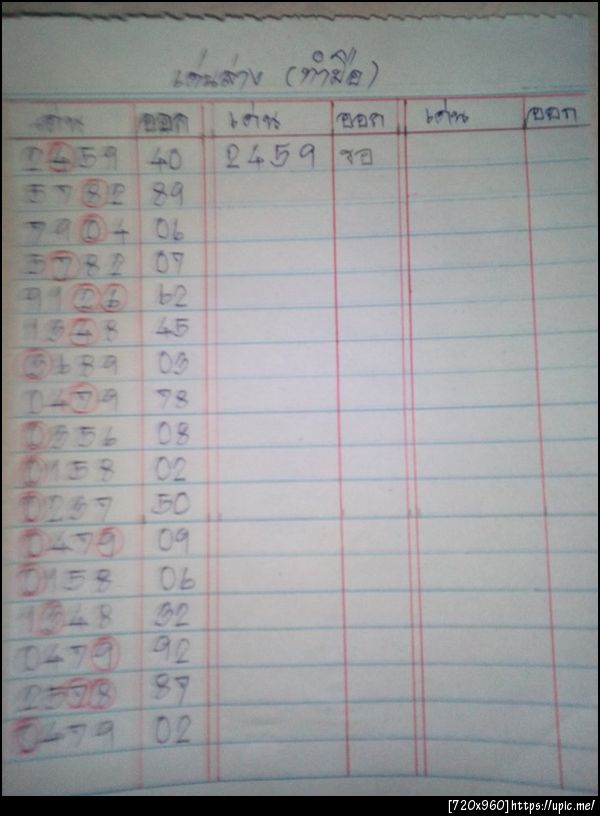 เด่นล่าง (ทำมือ)
เด่น ออก เด่น ออก เด่น ออก
2459 40 2459 รอ
5782 89
7904 06
5782 07
9126 62
1348 45
3689 03
0479 78
0356 08
0158 02
0237 50
0479 09
0158 06
1348 32
0479 92
2578 87
0479 02
[720x960]https://upic.me/